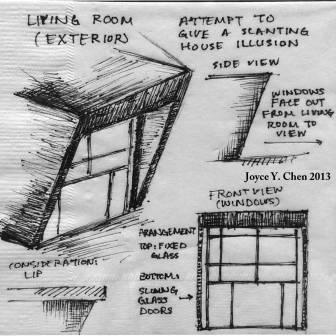 LIVING ROOM
(EXTERIOR)
ATTEMPT TO
GIVE A SLANTING
HOUSE ILLUSION
SIDE VIEW
WINDOWS
FACE OUT
FROM LIVING
ROOM TO
VIEW
Joyce Y. Chen 2013
FRONT VIEW
(WINDOWS)
ARANGEMENT
TOP: FIXED
GLASS
BOTTOM:
SLIDING
GLASS
DOORS
CONSIDERATION:
LIP